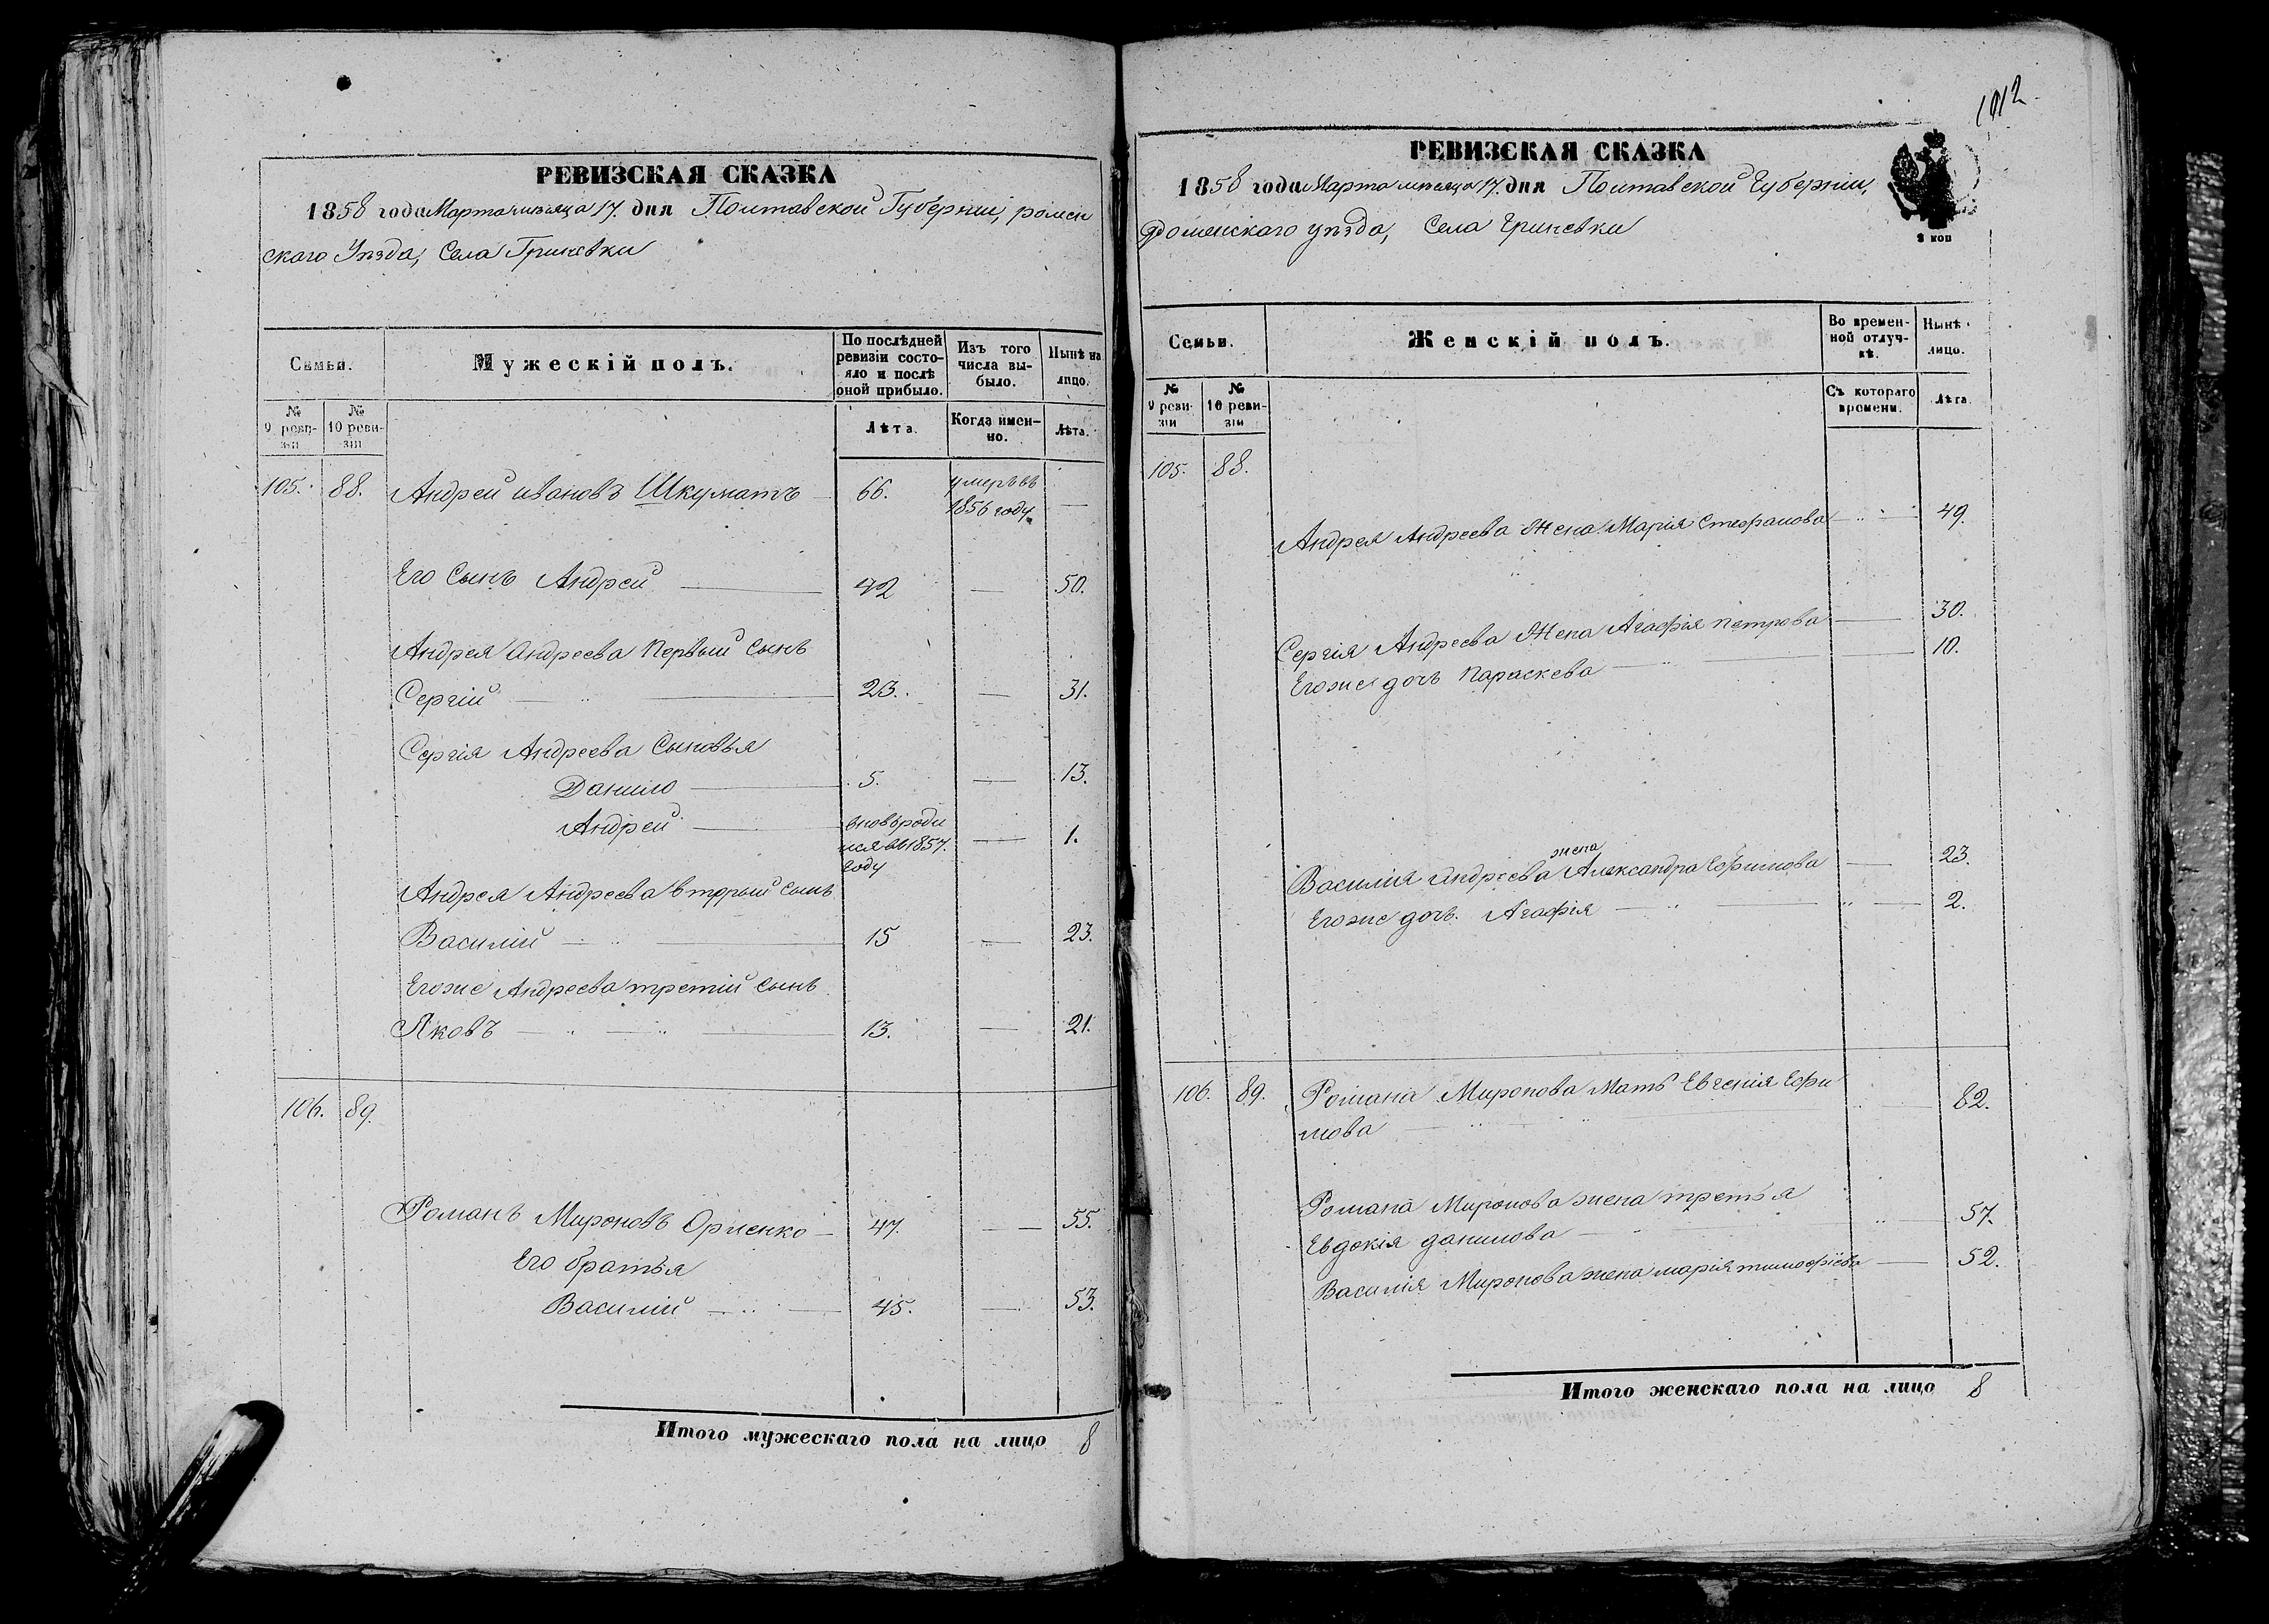 РЕВИЗСКАЯ СКАЗКА
1858 года Марта месяца 17. дня Полтавской Губернии, ромен
скаго Уезда, Села Гриневки
Семьи.
Мужескій полъ.
По послѣдней ревизіи состояло и послѣ оной прибыло.
Изъ того числа выбыло.
Нынѣ на лицо.
№ 9 ревизіи
№ 10 ревизіи
Лѣта.
Когда именно.
Лѣта.
105. 88. Андрей ивановъ Шкуматъ 66. умеръ въ 1856 году —
Его Сынъ Андрей — 42 — 50.
Андрея Андреева Первый Сынъ
Сергій — 23. — 31.
Сергія Андреева Сыновья
Данило — 5. — 13.
Андрей — вновь роди
лся въ 1857. — 1.
году
Андрея Андреева вторый сынъ
Василій — 15 — 23.
Егоже Андреева третій сынъ
Яковъ — 13. — 21.
106. 89.
Романъ Мироновъ — 47. — 55.
Его братья
Василій — 45. — 53.
Итого мужескаго пола на лицо 8
1012
РЕВИЗСКАЯ СКАЗКА
1858 года Марта месяца 17. дня Полтавской Губерніи,
Роменскаго уѣзда, Села Гриневки
2 коп
Семьи.
Женскій полъ.
Во временной отлучкѣ.
Нынѣ лицо.
№ 9 ревизіи
№ 10 ревизіи
Съ котораго времени.
Лѣта
105. 88.
Андрея Андреева Жена Марія Стефанова — 49.
Сергія Андреева Жена Агафія петрова — 30.
Егоже дочь Параскева — 10.
жена
Василія Андреева Александра Ефимова — 23.
Егоже дочь. Агафія — 2.
106. 89. Романа Миронова Мать Евгенія Ефи
мова — 82.
Романа Миронова жена третья
Евдокія данилова — 57.
Василія Миронова жена марія тимофіева — 52.
Итого женскаго пола на лицо 8